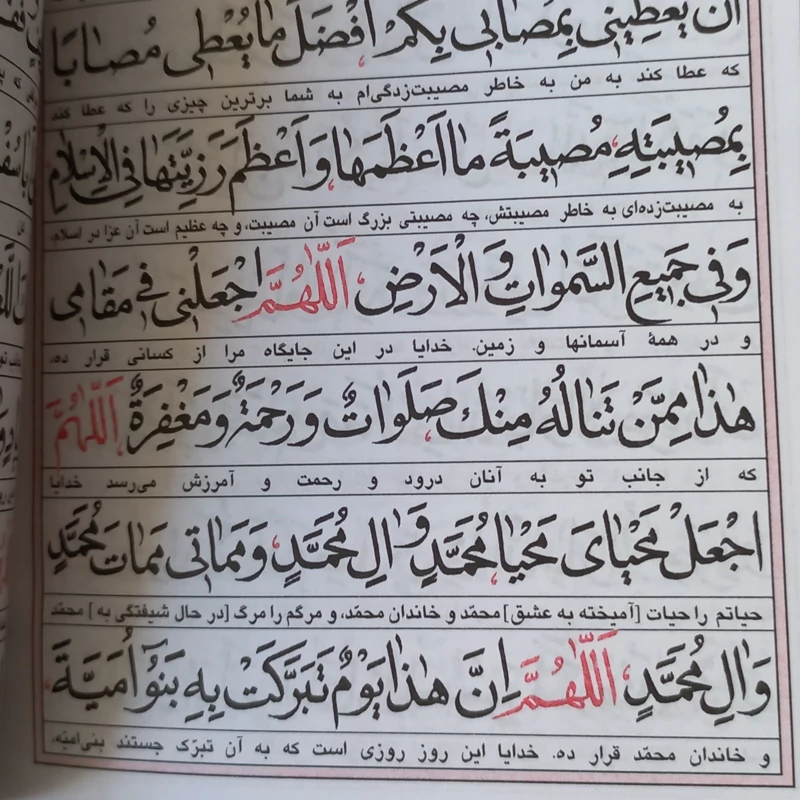 أَنْ يُعْطِيَنِي بِمُصَابِي بِكُمْ أَفْضَلَ مَا يُعْطِي مُصَابًا
که عطا کند به من به خاطر مصیبت‌زدگی‌ام به شما برترین چیزی را که عطا کند
بِمُصِيبَتِهِ، مُصِيبَةً مَا أَعْظَمَهَا وَأَعْظَمَ رَزِيَّتَهَا فِي الْإِسْلَامِ
به مصیبت‌زده‌ای به خاطر مصیبتش، چه مصیبتی بزرگ است آن مصیبت، و چه عظیم است آن عزا در اسلام،
وَفِي جَمِيعِ السَّمٰوَاتِ وَالْأَرْضِ، اَللّٰهُمَّ اجْعَلْنِي فِي مَقَامِي
و در همهٔ آسمانها و زمین. خدایا در این جایگاه مرا از کسانی قرار ده،
هٰذَا مِمَّنْ تَنَالُهُ مِنْكَ صَلَوَاتٌ وَرَحْمَةٌ وَمَغْفِرَةٌ، اَللّٰهُمَّ
که از جانب تو به آنان درود و رحمت و آمرزش می‌رسد خدایا
اجْعَلْ مَحْيَايَ مَحْيَا مُحَمَّدٍ وَآلِ مُحَمَّدٍ، وَمَمَاتِي مَمَاتَ مُحَمَّدٍ
حیاتم را حیات [آمیخته به عشق] محمّد و خاندان محمّد، و مرگم را مرگ [در حال شیفتگی به] محمّد
وَآلِ مُحَمَّدٍ، اَللّٰهُمَّ إِنَّ هٰذَا يَوْمٌ تَبَرَّكَتْ بِهِ بَنُو أُمَيَّةَ
و خاندان محمّد قرار ده. خدایا این روز روزی است که به آن تبرّک جستند بنی‌امیّه،